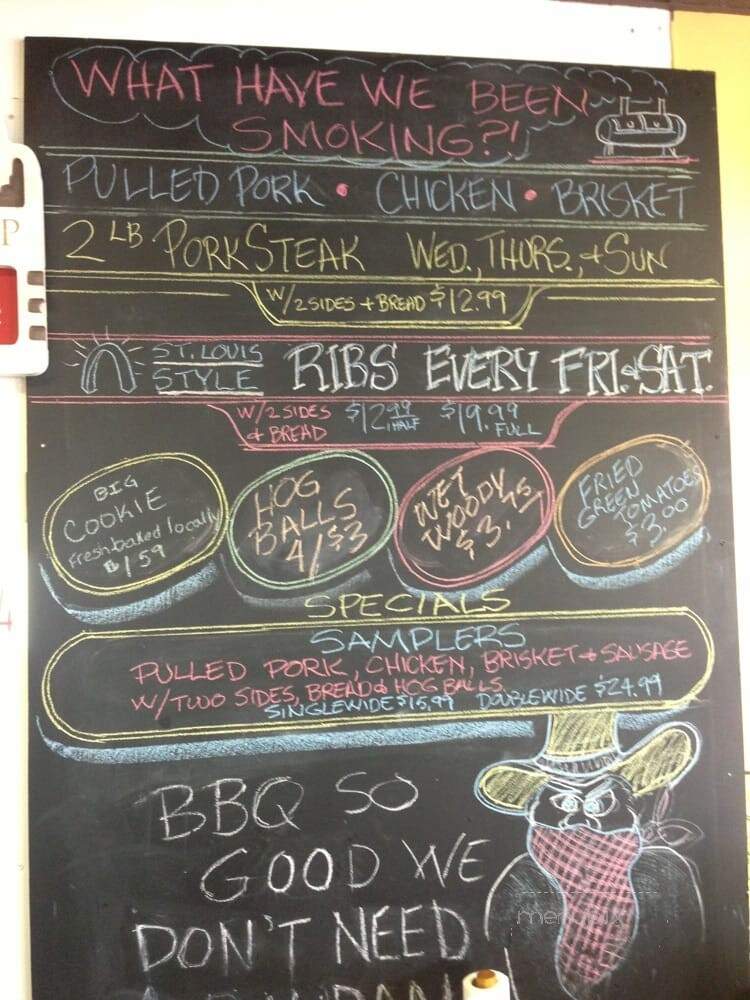 WHAT HAVE WE BEEN
SMOKING?!
PULLED PORK • CHICKEN • BRISKET
2 LB PORK STEAK WED., THURS., + SUN
W/ 2 SIDES + BREAD $12.99
ST. LOUIS
STYLE
RIBS EVERY FRI. & SAT.
W/ 2 SIDES
& BREAD
$12.99 HALF $19.99 FULL
BIG
COOKIE
Fresh baked locally
$1.59
HOG
BALLS
4/$3
WET
WOODY
$3.75
FRIED
GREEN
TOMATOES
$3.00
SPECIALS
SAMPLERS
PULLED PORK, CHICKEN, BRISKET + SAUSAGE
W/ TWO SIDES, BREAD & HOG BALLS
SINGLEWIDE $15.99 DOUBLEWIDE $24.99
BBQ SO
GOOD WE
DON'T NEED
P